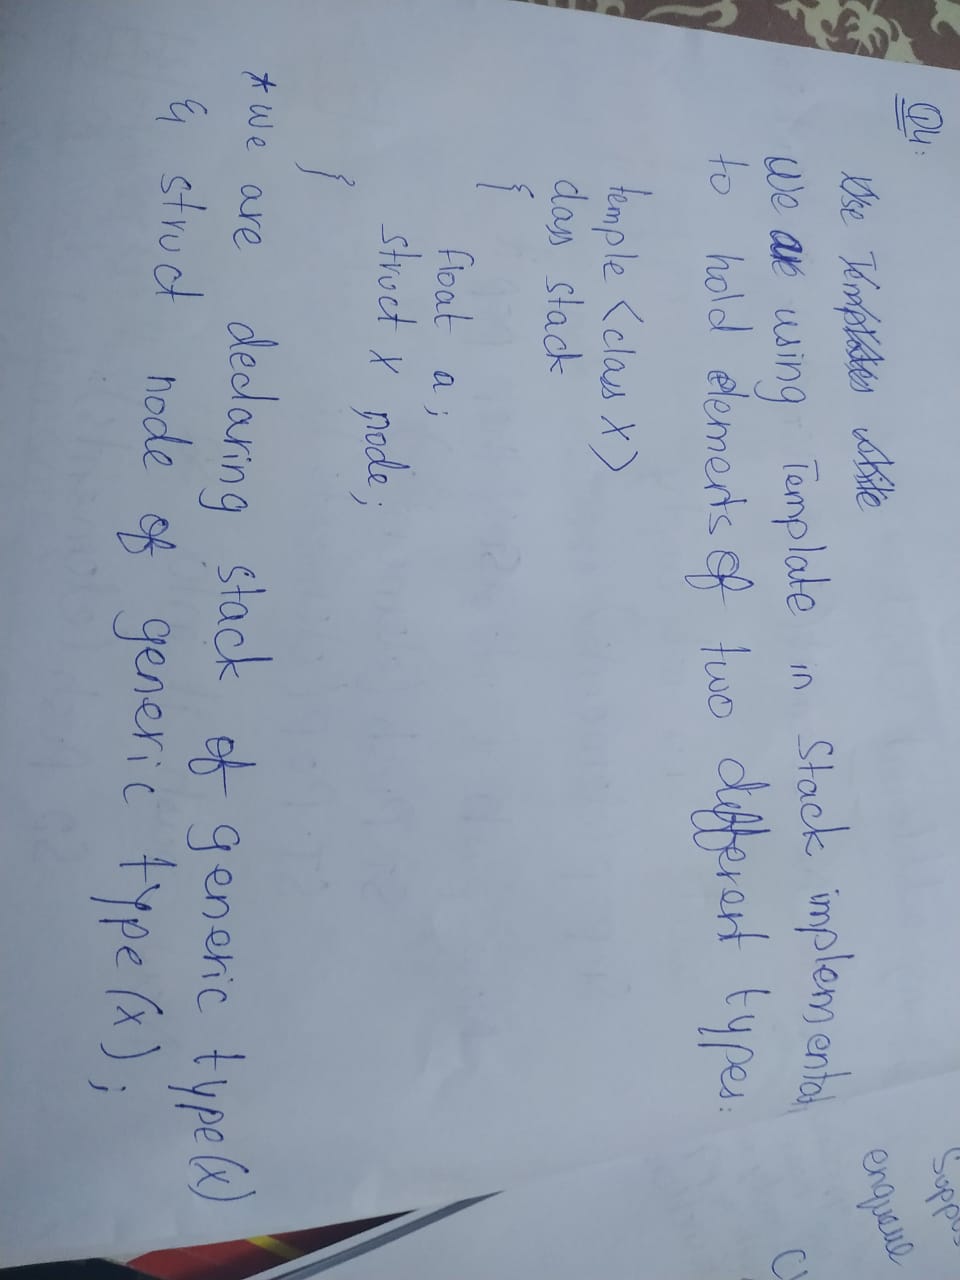 Q4:
Use Templates while
We are using Template in Stack implementat
to hold elements of two different types:
temple <class X>
class stack
{
float a;
struct x node;
}
* we are declaring stack of generic type(x)
& struct node of generic type(x);
Suppos
enqueue